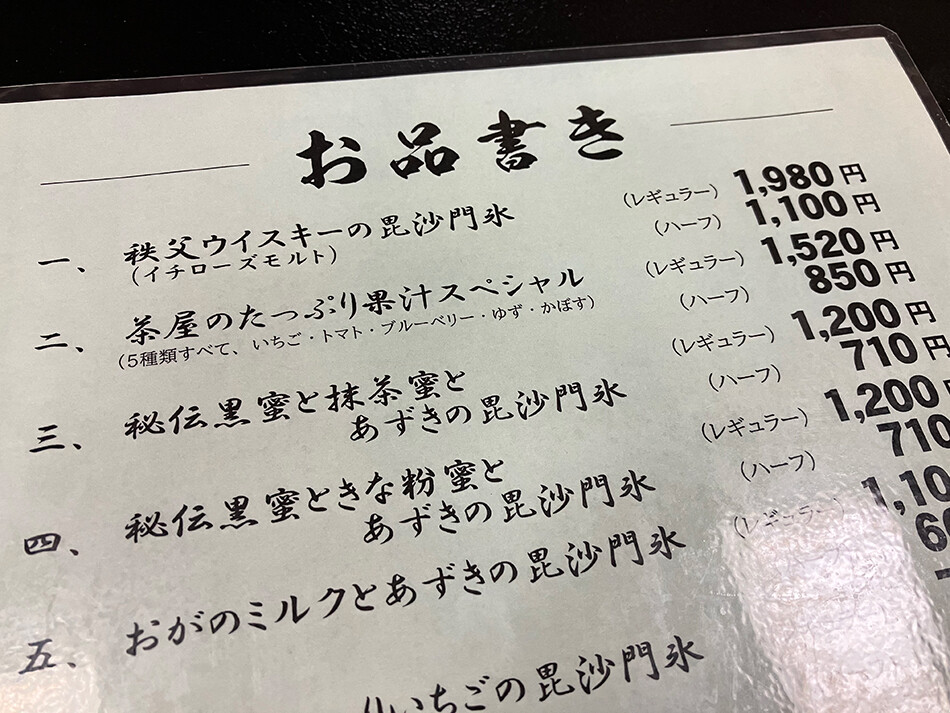 お品書き
一、 秩父ウイスキーの毘沙門氷 (レギュラー) 1,980円
(イチローズモルト) (ハーフ) 1,100円
二、 茶屋のたっぷり果汁スペシャル (レギュラー) 1,520円
(5種類すべて、いちご・トマト・ブルーベリー・ゆず・かぼす) (ハーフ) 850円
三、 秘伝黒蜜と抹茶蜜と (レギュラー) 1,200円
あずきの毘沙門氷 (ハーフ) 710円
四、 秘伝黒蜜ときな粉蜜と (レギュラー) 1,200円
あずきの毘沙門氷 (ハーフ) 710
五、 おがのミルクとあずきの毘沙門氷 (レギュラー)
いちごの毘沙門氷